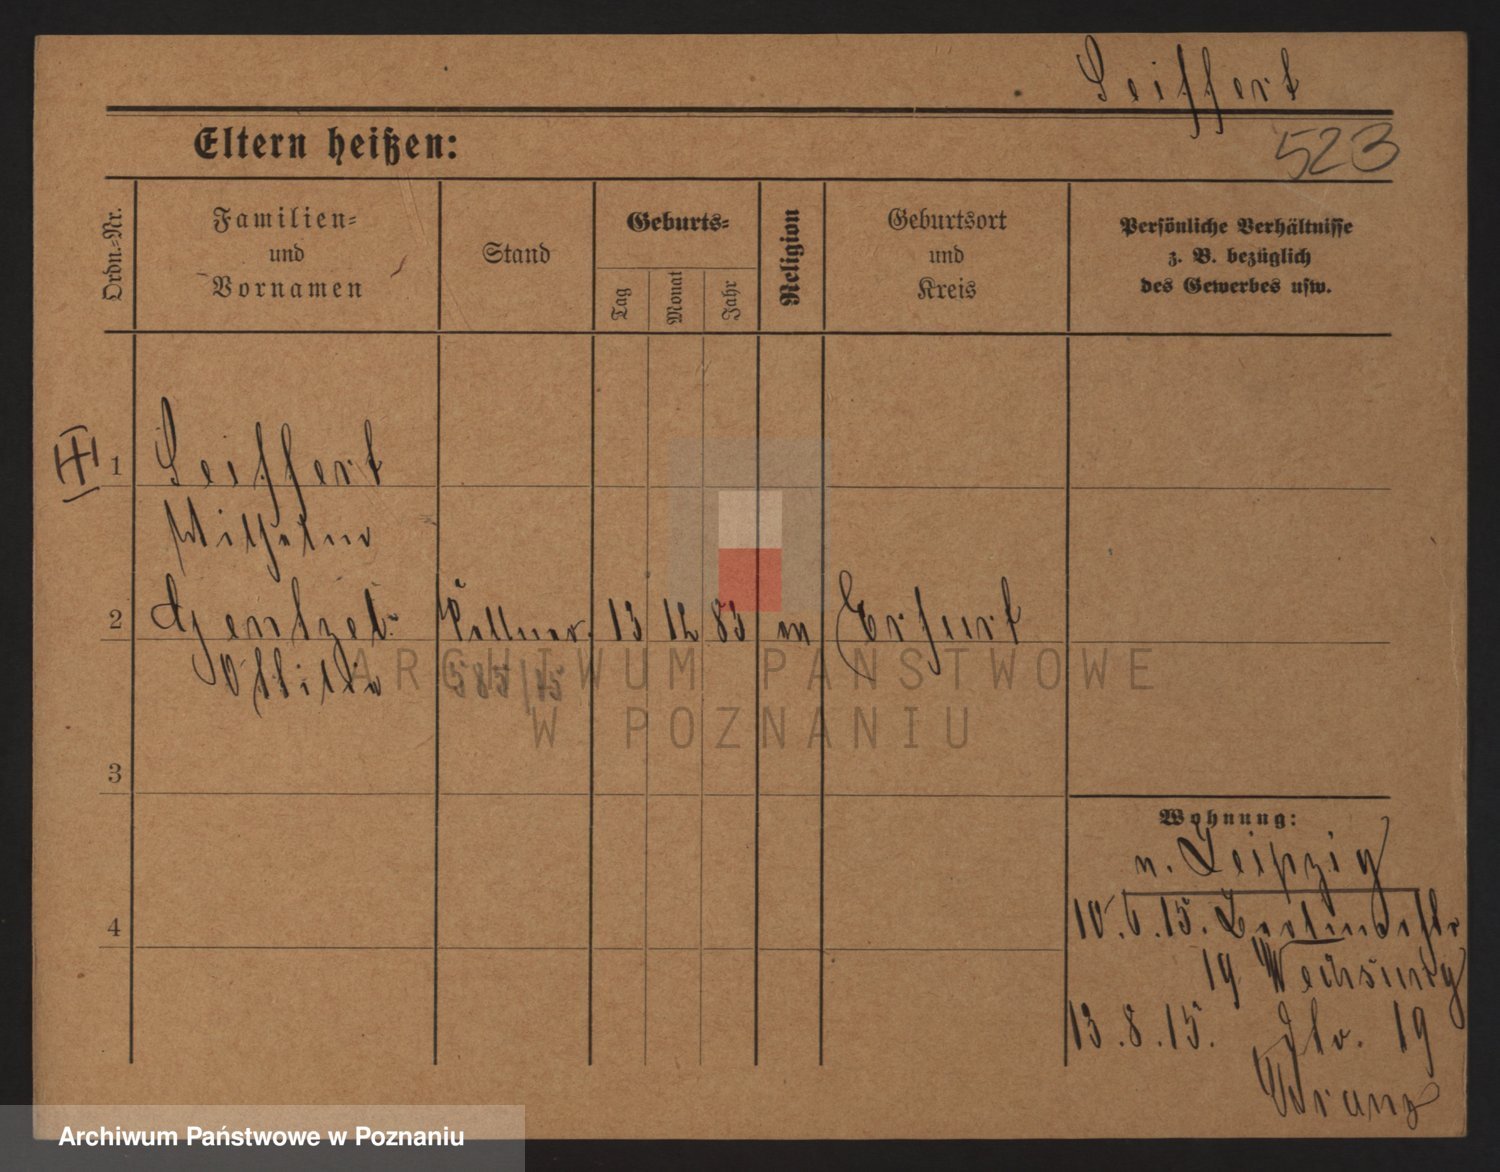 Seiffert
Eltern heißen:
523
Ordn.-Nr.
Familien-
und
Vornamen
Stand
Geburts-
Tag
Monat
Jahr
Religion
Geburtsort
und
Kreis
Persönliche Verhältnisse
z. B. bezüglich
des Gewerbes usw.
1
Seiffert
Wilhelm
2
Gentzel
Ottilie
13 12 83
Erfurt
585/15
ARCHIWUM PAŃSTWOWE
W POZNANIU
3
Wohnung:
n. Leipzig
4
10.6.15.
19
13.8.15. 19
Archiwum Państwowe w Poznaniu